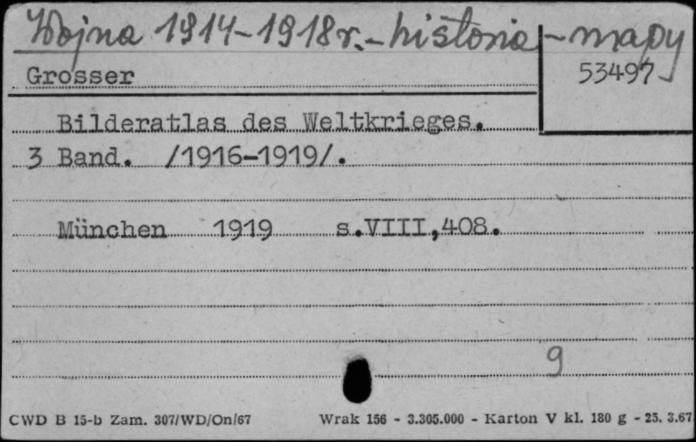 Wojna 1914-1918r. - historia - mapy
Grosser
53497
Bilderatlas des Weltkrieges.
3 Band. /1916-1919/.
München 1919 s.VIII,408.
9
CWD B 15-b Zam. 307/WD/On/67 Wrak 156 - 3.305.000 - Karton V kl. 180 g - 25. 3.67